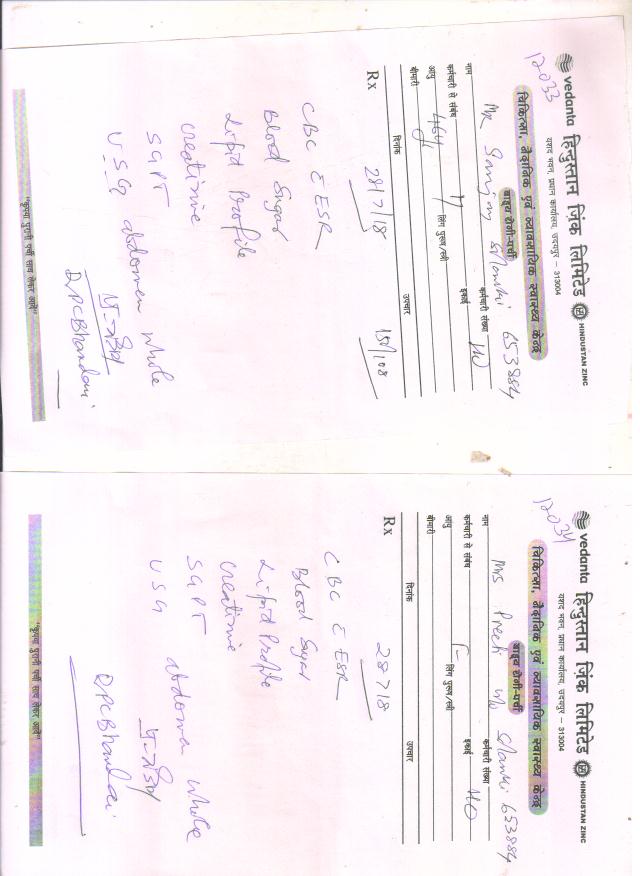 12033
vedanta हिन्दुस्तान ज़िंक लिमिटेड HINDUSTAN ZINC
यशद भवन, प्रधान कार्यालय, उदयपुर – 313004
चिकित्सा, नैदानिक एवं व्यावसायिक स्वास्थ्य केन्द्र
बाह्य रोगी-पर्ची
नाम Mr 653884
कर्मचारी से संबंध कर्मचारी संख्या HO
आयु 46y M लिंग पुरूष/स्त्री इकाई
बीमारी
Rx दिनांक उपचार
28/7/18
CBC & ESR
Blood Sugar
Lipid Profile
Creatinine
SGPT
USG abdomen whole
Dr PC Bhandari
"कृपया पुरानी पर्ची साथ लेकर आवें"
12034
vedanta हिन्दुस्तान ज़िंक लिमिटेड HINDUSTAN ZINC
यशद भवन, प्रधान कार्यालय, उदयपुर – 313004
चिकित्सा, नैदानिक एवं व्यावसायिक स्वास्थ्य केन्द्र
बाह्य रोगी-पर्ची
नाम Mrs Preeti 653884
कर्मचारी से संबंध कर्मचारी संख्या HO
आयु F लिंग पुरूष/स्त्री इकाई
बीमारी
Rx दिनांक उपचार
28 7 18
CBC & ESR
Blood Sugar
Lipid Profile
Creatinine
SGPT
USG abdomen whole
Dr PC Bhandari
"कृपया पुरानी पर्ची साथ लेकर आवें"